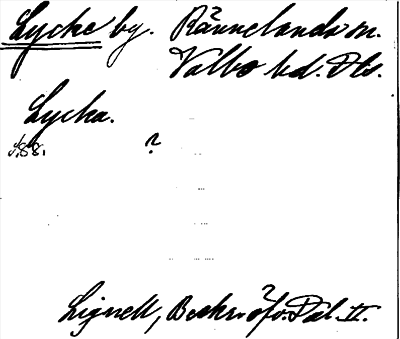 Lycke by. Rännelanda sn.
Valbo hd. Dls.
Lycka.
s. 88. ?
Lignell, Beskr. öfv. Dal. II.